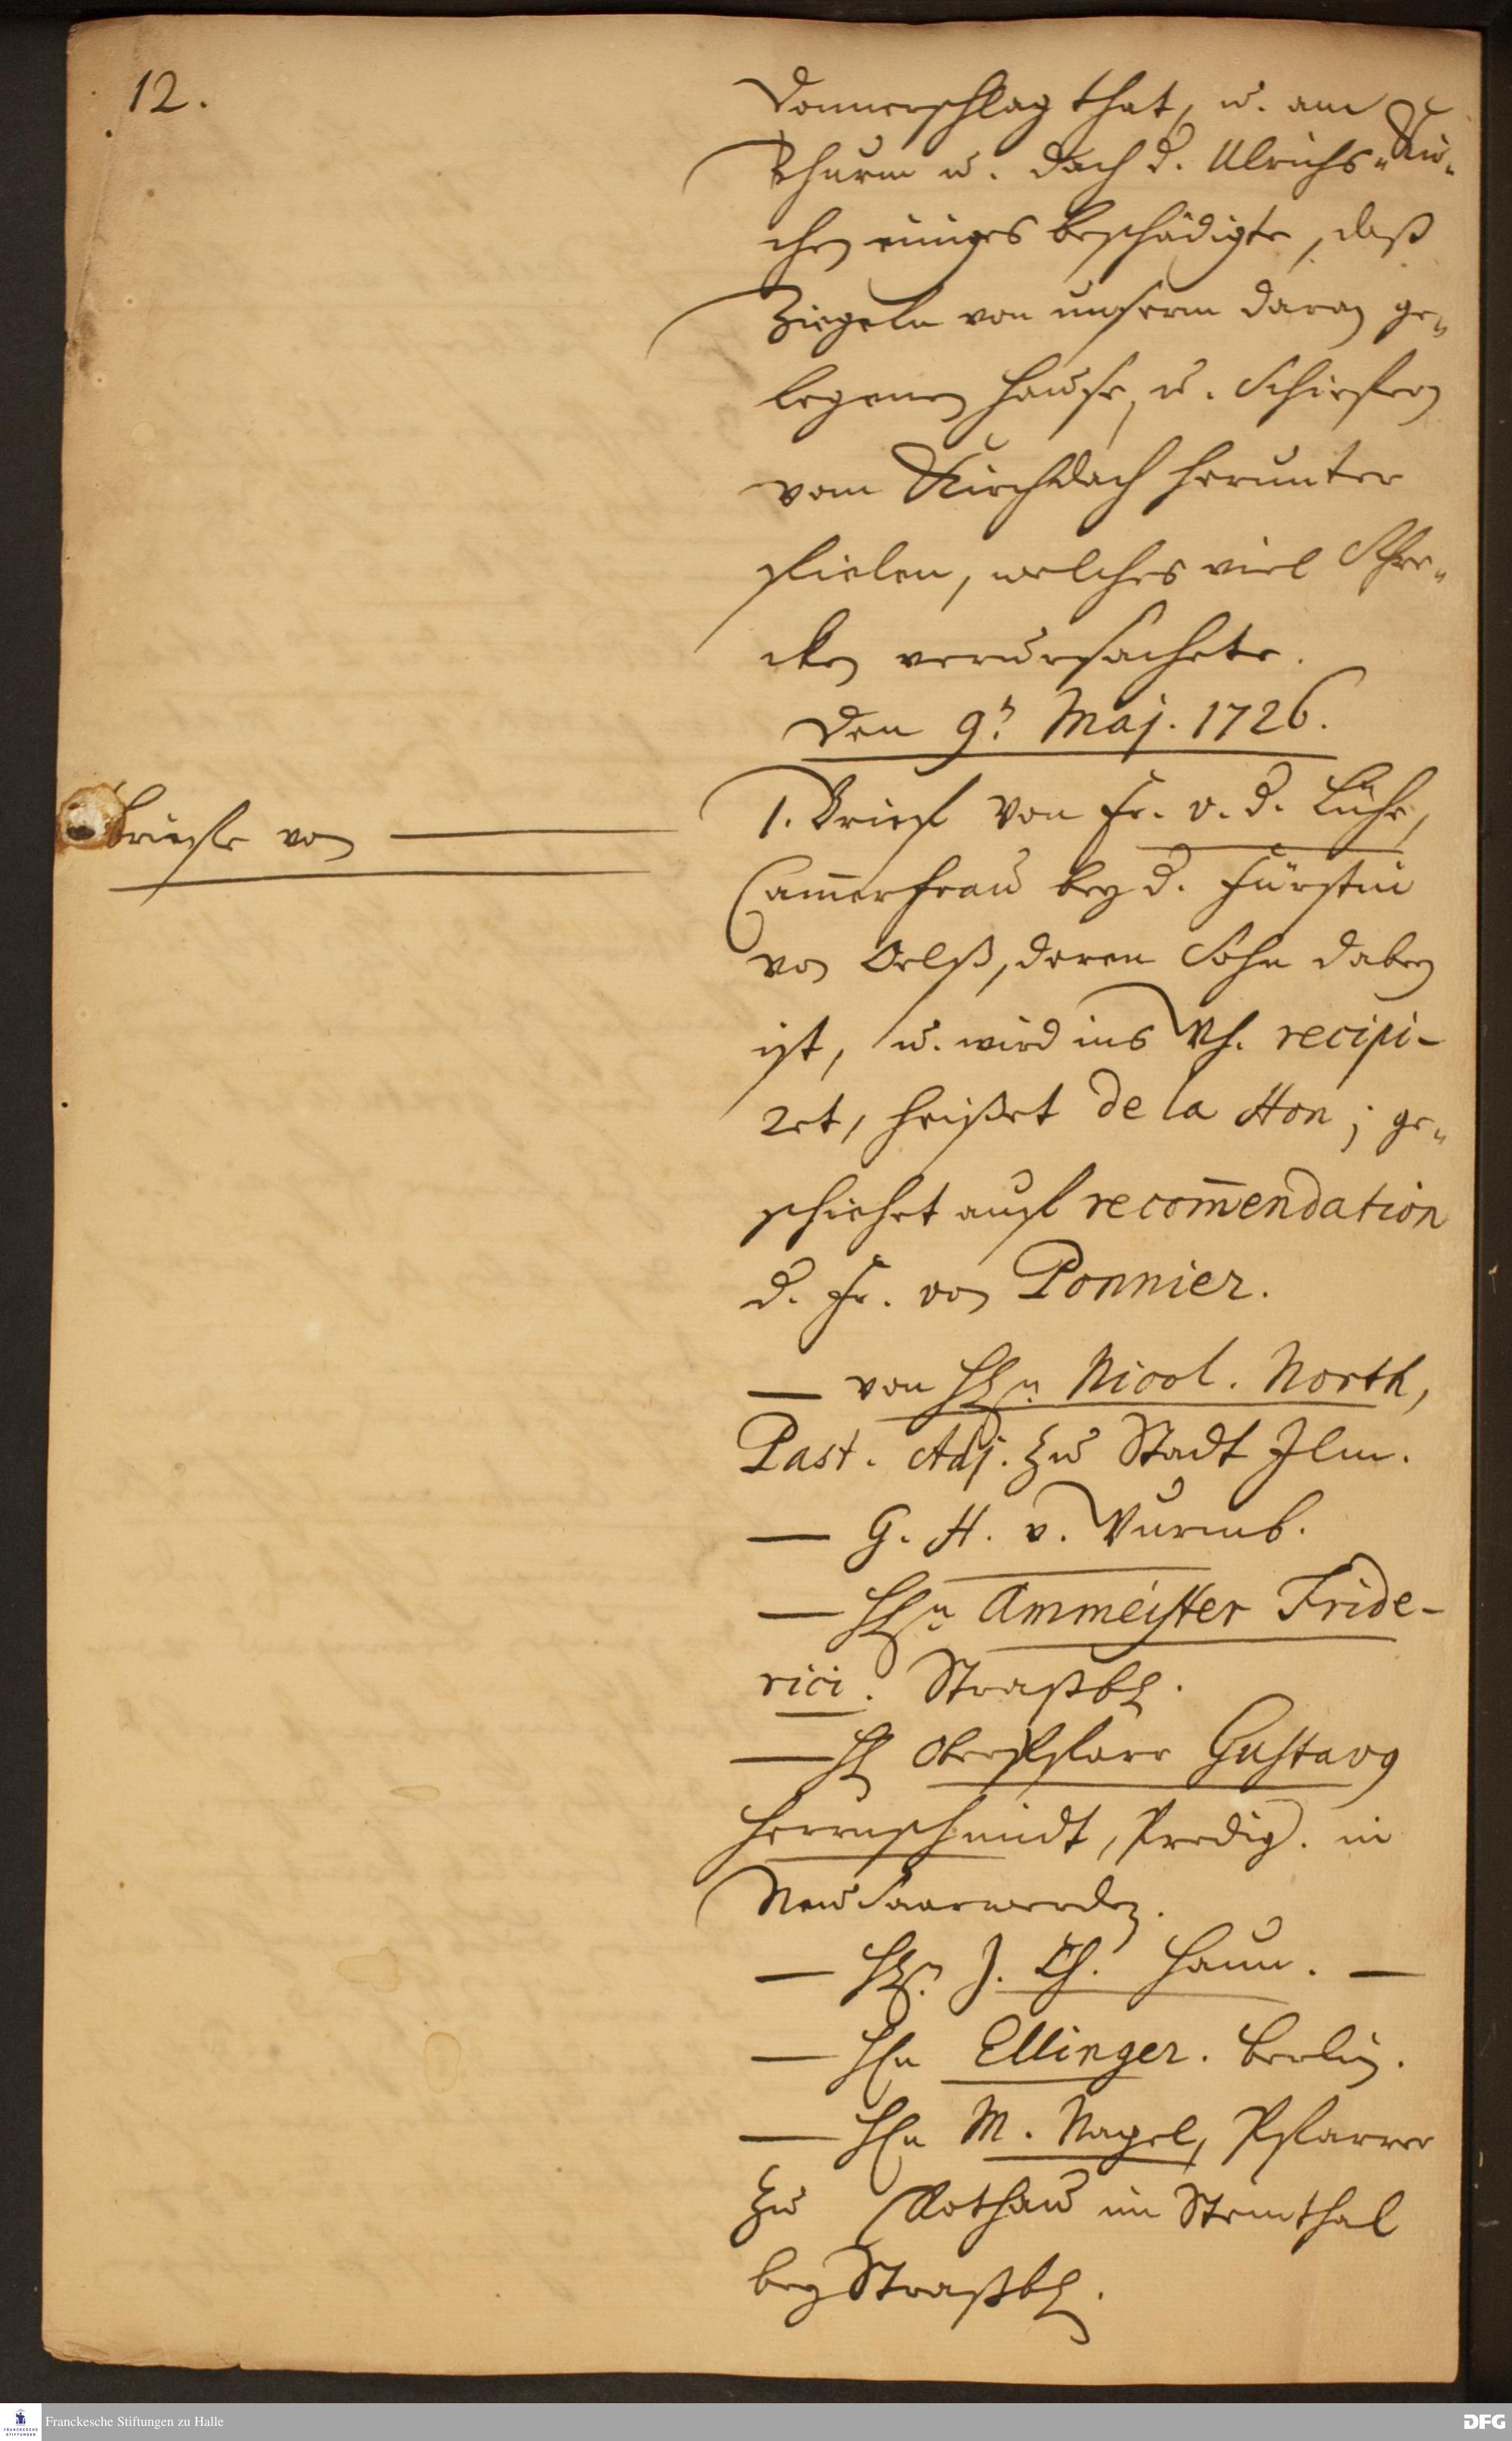 12.
Donnerschlag that, u. am
Thurm u. Dach d. Ulrichs-Kir-
chen einiges beschädigte, daß
Ziegeln von unserm daran ge-
legenen Hause, u. Schiefern
vom Kirchdach herunter
fielen, welches viel Schre-
cken verursachete.
Den 9t. Maj. 1726.
Briefe von
1. Brief von Fr. v. d. Lühe,
Cam̄erfrau bey d. Fürstin
von Oelß, deren Sohn dabey
ist, u. wird ins Wh. recipi-
ret, heißet de la Hon; ge-
schiehet auf recom̄endation
d. Fr. von Ponnier.
— von Hrn. Nicol. North,
Past. Adj. zu Stadt Ilm.
— G. H. v. Wurmb.
— Hrn. Ammeister Fride-
rici. Straßb.
— H. OberPfarr Gustavg
Herrnschmidt, Predig. in
Neu Saarwerden.
— Hrn. J. Ch. Haun. —
— Hn Ellinger. Berlin.
— Hn M. Nagel, Pfarrer
zu Rothau im Steinthal
bey Straßb.
FRANCKESCHE STIFTUNGEN
Franckesche Stiftungen zu Halle
DFG